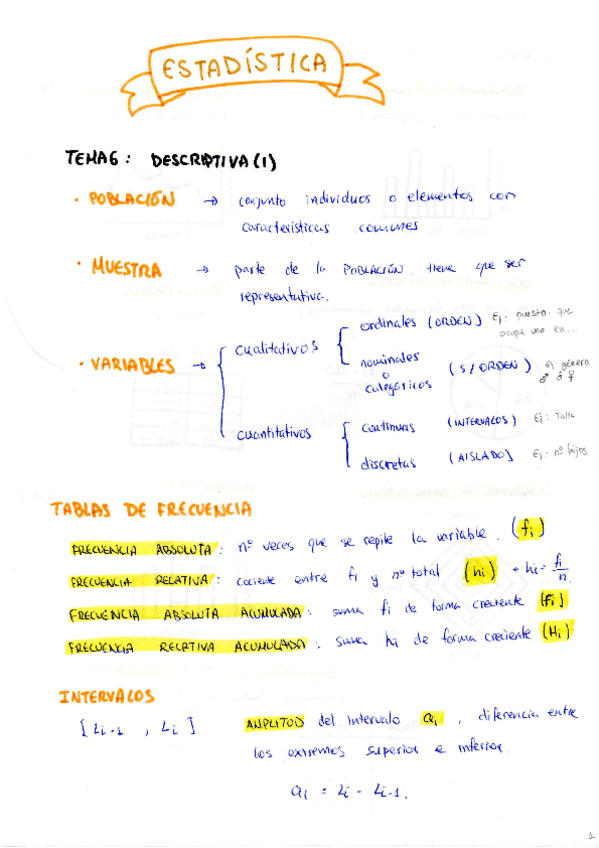 ESTADÍSTICA
TEMA 6: DESCRIPTIVA (1)
· POBLACIÓN → conjunto individuos o elementos con
características comunes
· MUESTRA → parte de la POBLACIÓN. tiene que ser
representativa.
· VARIABLES → cualitativos
ordinales (ORDEN) Ej: puesto que
ocupa uno en...
nominales
o
categóricos (S/ORDEN) Ej género
♂ ó ♀
cuantitativos
continuas (INTERVALOS) Ej: Talla
discretas (AISLADO) Ej: nº hijos
TABLAS DE FRECUENCIA
FRECUENCIA ABSOLUTA: nº veces que se repite la variable. (fi)
FRECUENCIA RELATIVA: cociente entre fi y nº total (hi) → hi = fi/n
FRECUENCIA ABSOLUTA ACUMULADA: suma fi de forma creciente (Fi)
FRECUENCIA RELATIVA ACUMULADA: suma hi de forma creciente (Hi)
INTERVALOS
[Li-1 , Li] AMPLITUD del intervalo ai , diferencia entre
los extremos superior e inferior.
ai = Li - Li-1.
1